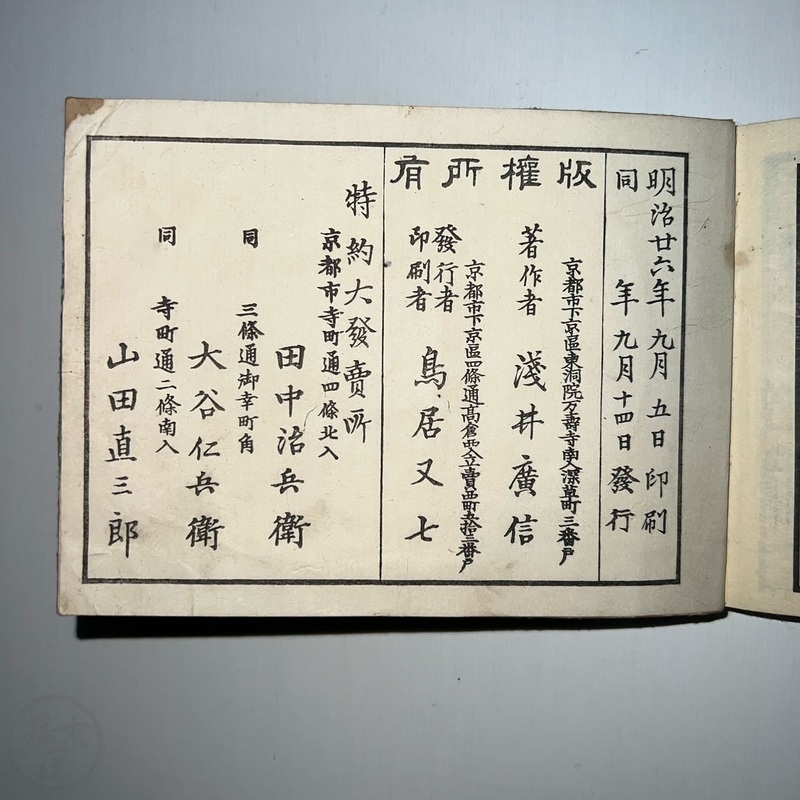 明治廿六年九月五日印刷
同年九月十四日發行
版權所有
京都市下京區東洞院万壽寺南入深草町三番戸
著作者 淺井廣信
京都市下京區四條通髙倉西入立賣西町五拾三番戸
發行者
印刷者 鳥居又七
特約大發賣所
京都市寺町通四條北入
田中治兵衛
同 三條通御幸町角
大谷仁兵衛
同 寺町通二條南入
山田直三郎